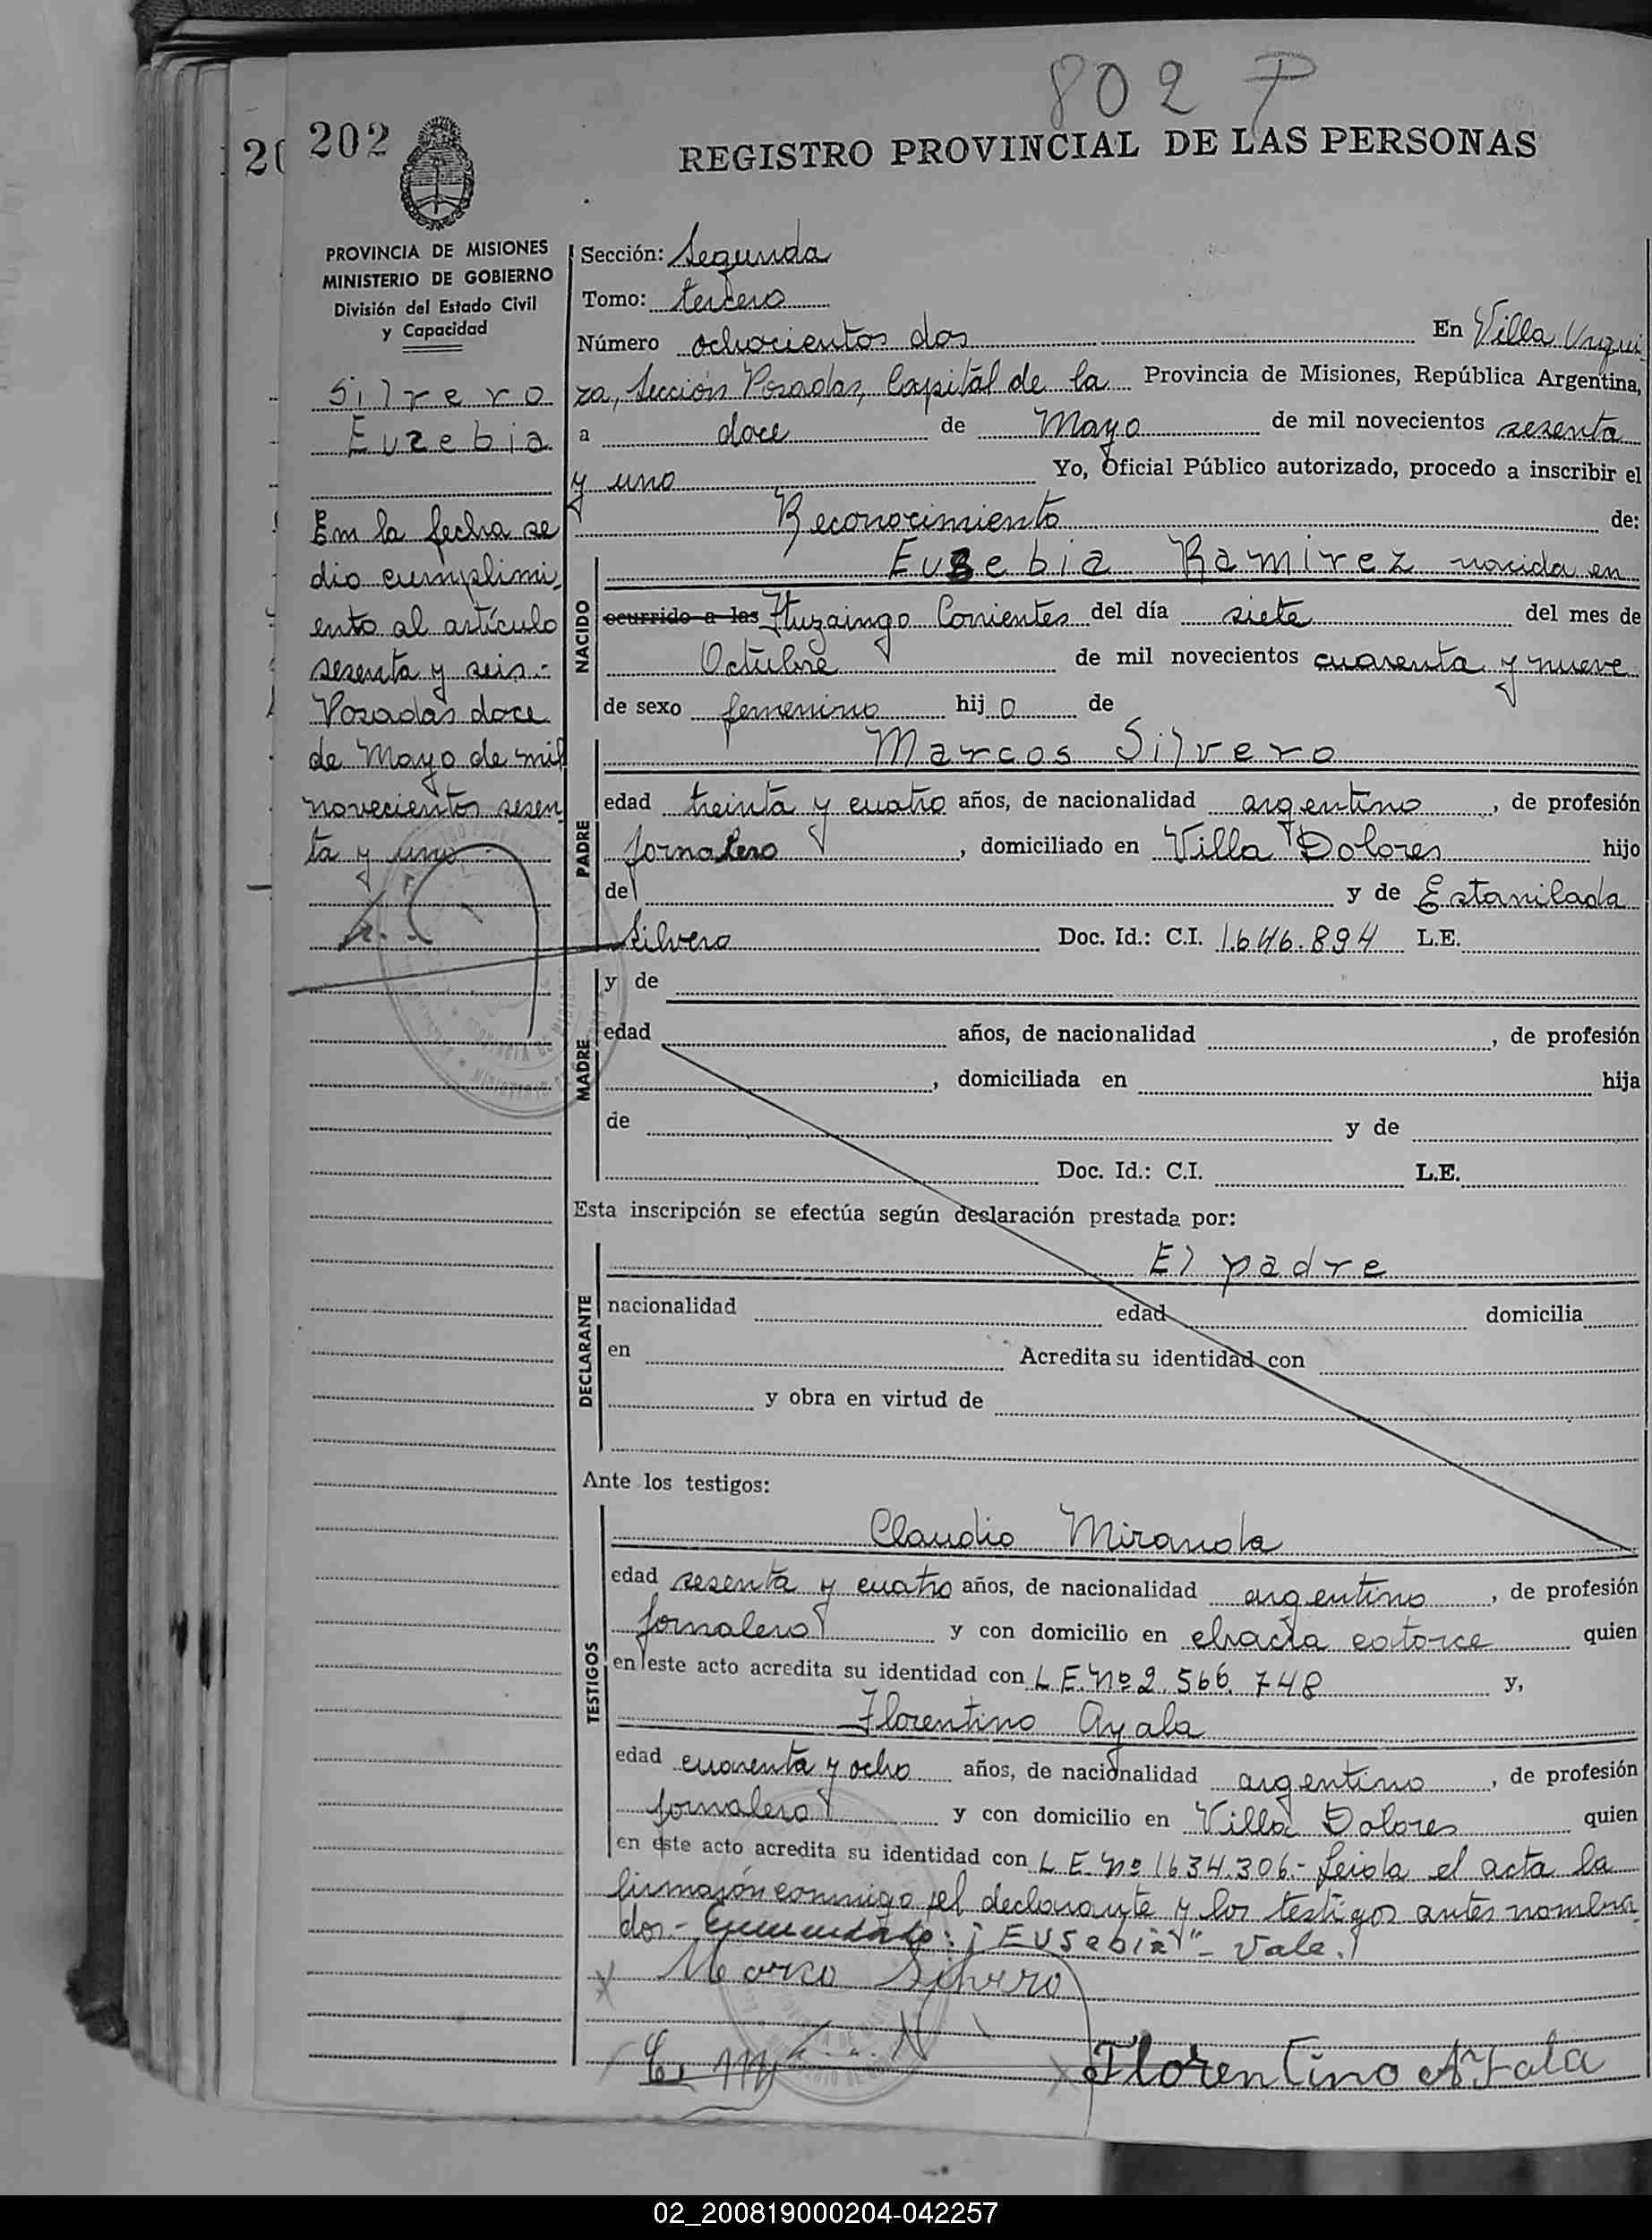 802 P
202
20
REGISTRO PROVINCIAL DE LAS PERSONAS
PROVINCIA DE MISIONES
MINISTERIO DE GOBIERNO
División del Estado Civil
y Capacidad
Silvero
Euzebia
En la fecha se
dio cumplimi
ento al artículo
sesenta y seis.-
Posadas doce
de Mayo de mil
novecientos sesen
ta y uno
Sección: Segunda
Tomo: tercero
Número ochocientos dos En Villa Urqui
za, Sección Posadas, Capital de la Provincia de Misiones, República Argentina,
a doce de Mayo de mil novecientos sesenta
y uno Yo, Oficial Público autorizado, procedo a inscribir el
Reconocimiento de:
NACIDO
Eusebia Ramirez nacida en
ocurrido a las Ituzaingo Corrientes del día siete del mes de
Octubre de mil novecientos cuarenta y nueve
de sexo femenino hijo de
PADRE
Marcos Silvero
edad treinta y cuatro años, de nacionalidad argentino, de profesión
jornalero, domiciliado en Villa Dolores hijo
de y de Estanilada
Silvero Doc. Id.: C.I. 1.646.894 L.E.
MADRE
y de
edad años, de nacionalidad , de profesión
, domiciliada en hija
de y de
Doc. Id.: C.I. L.E.
Esta inscripción se efectúa según declaración prestada por:
DECLARANTE
El padre
nacionalidad edad domicilia
en Acredita su identidad con
y obra en virtud de
Ante los testigos:
TESTIGOS
Claudio Miranda
edad sesenta y cuatro años, de nacionalidad argentino, de profesión
jornalero y con domicilio en chacra catorce quien
en este acto acredita su identidad con L.E. Nº 2.566.748 y,
Florentino Ayala
edad cuarenta y ocho años, de nacionalidad argentino, de profesión
jornalero y con domicilio en Villa Dolores quien
en este acto acredita su identidad con L.E. Nº 1634.306.- Leida el acta la
firmaron conmigo el declarante y los testigos antes nombra
dos.- Enmendado: "Eusebia" - Vale.
Marco Silvero
C. M
Florentino Ayala
02_200819000204-042257